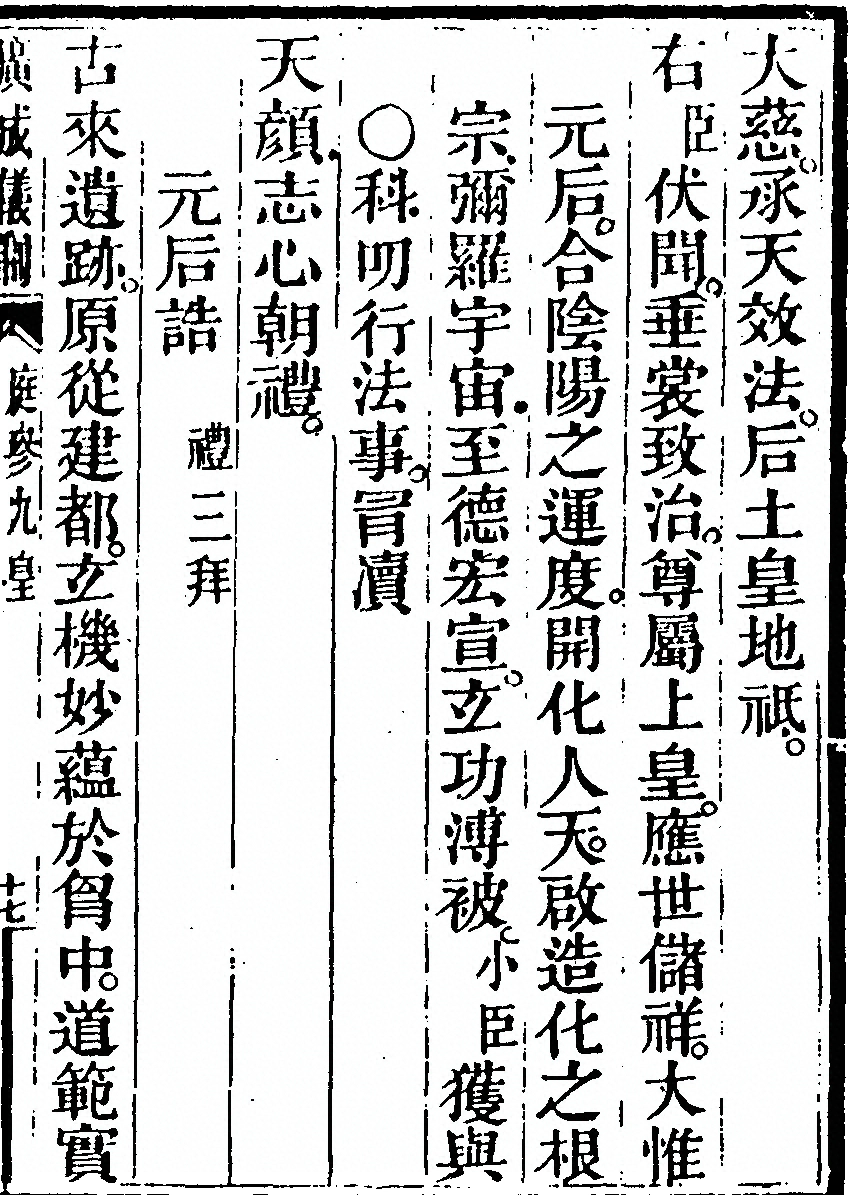 大慈。承天效法。后土皇地祇。
右臣伏聞。垂裳致治。尊屬上皇。應世儲祥。大惟
元后。合陰陽之運度。開化人天。啟造化之根
宗。彌羅宇宙。至德宏宣。立功溥被。小臣獲與
〇科。叨行法事。冒瀆
天顔。志心朝禮。
元后誥 禮三拜
古來遺跡。原從建都。立機妙蘊於胷中。道範實
廣成儀制 庭參九皇 十七